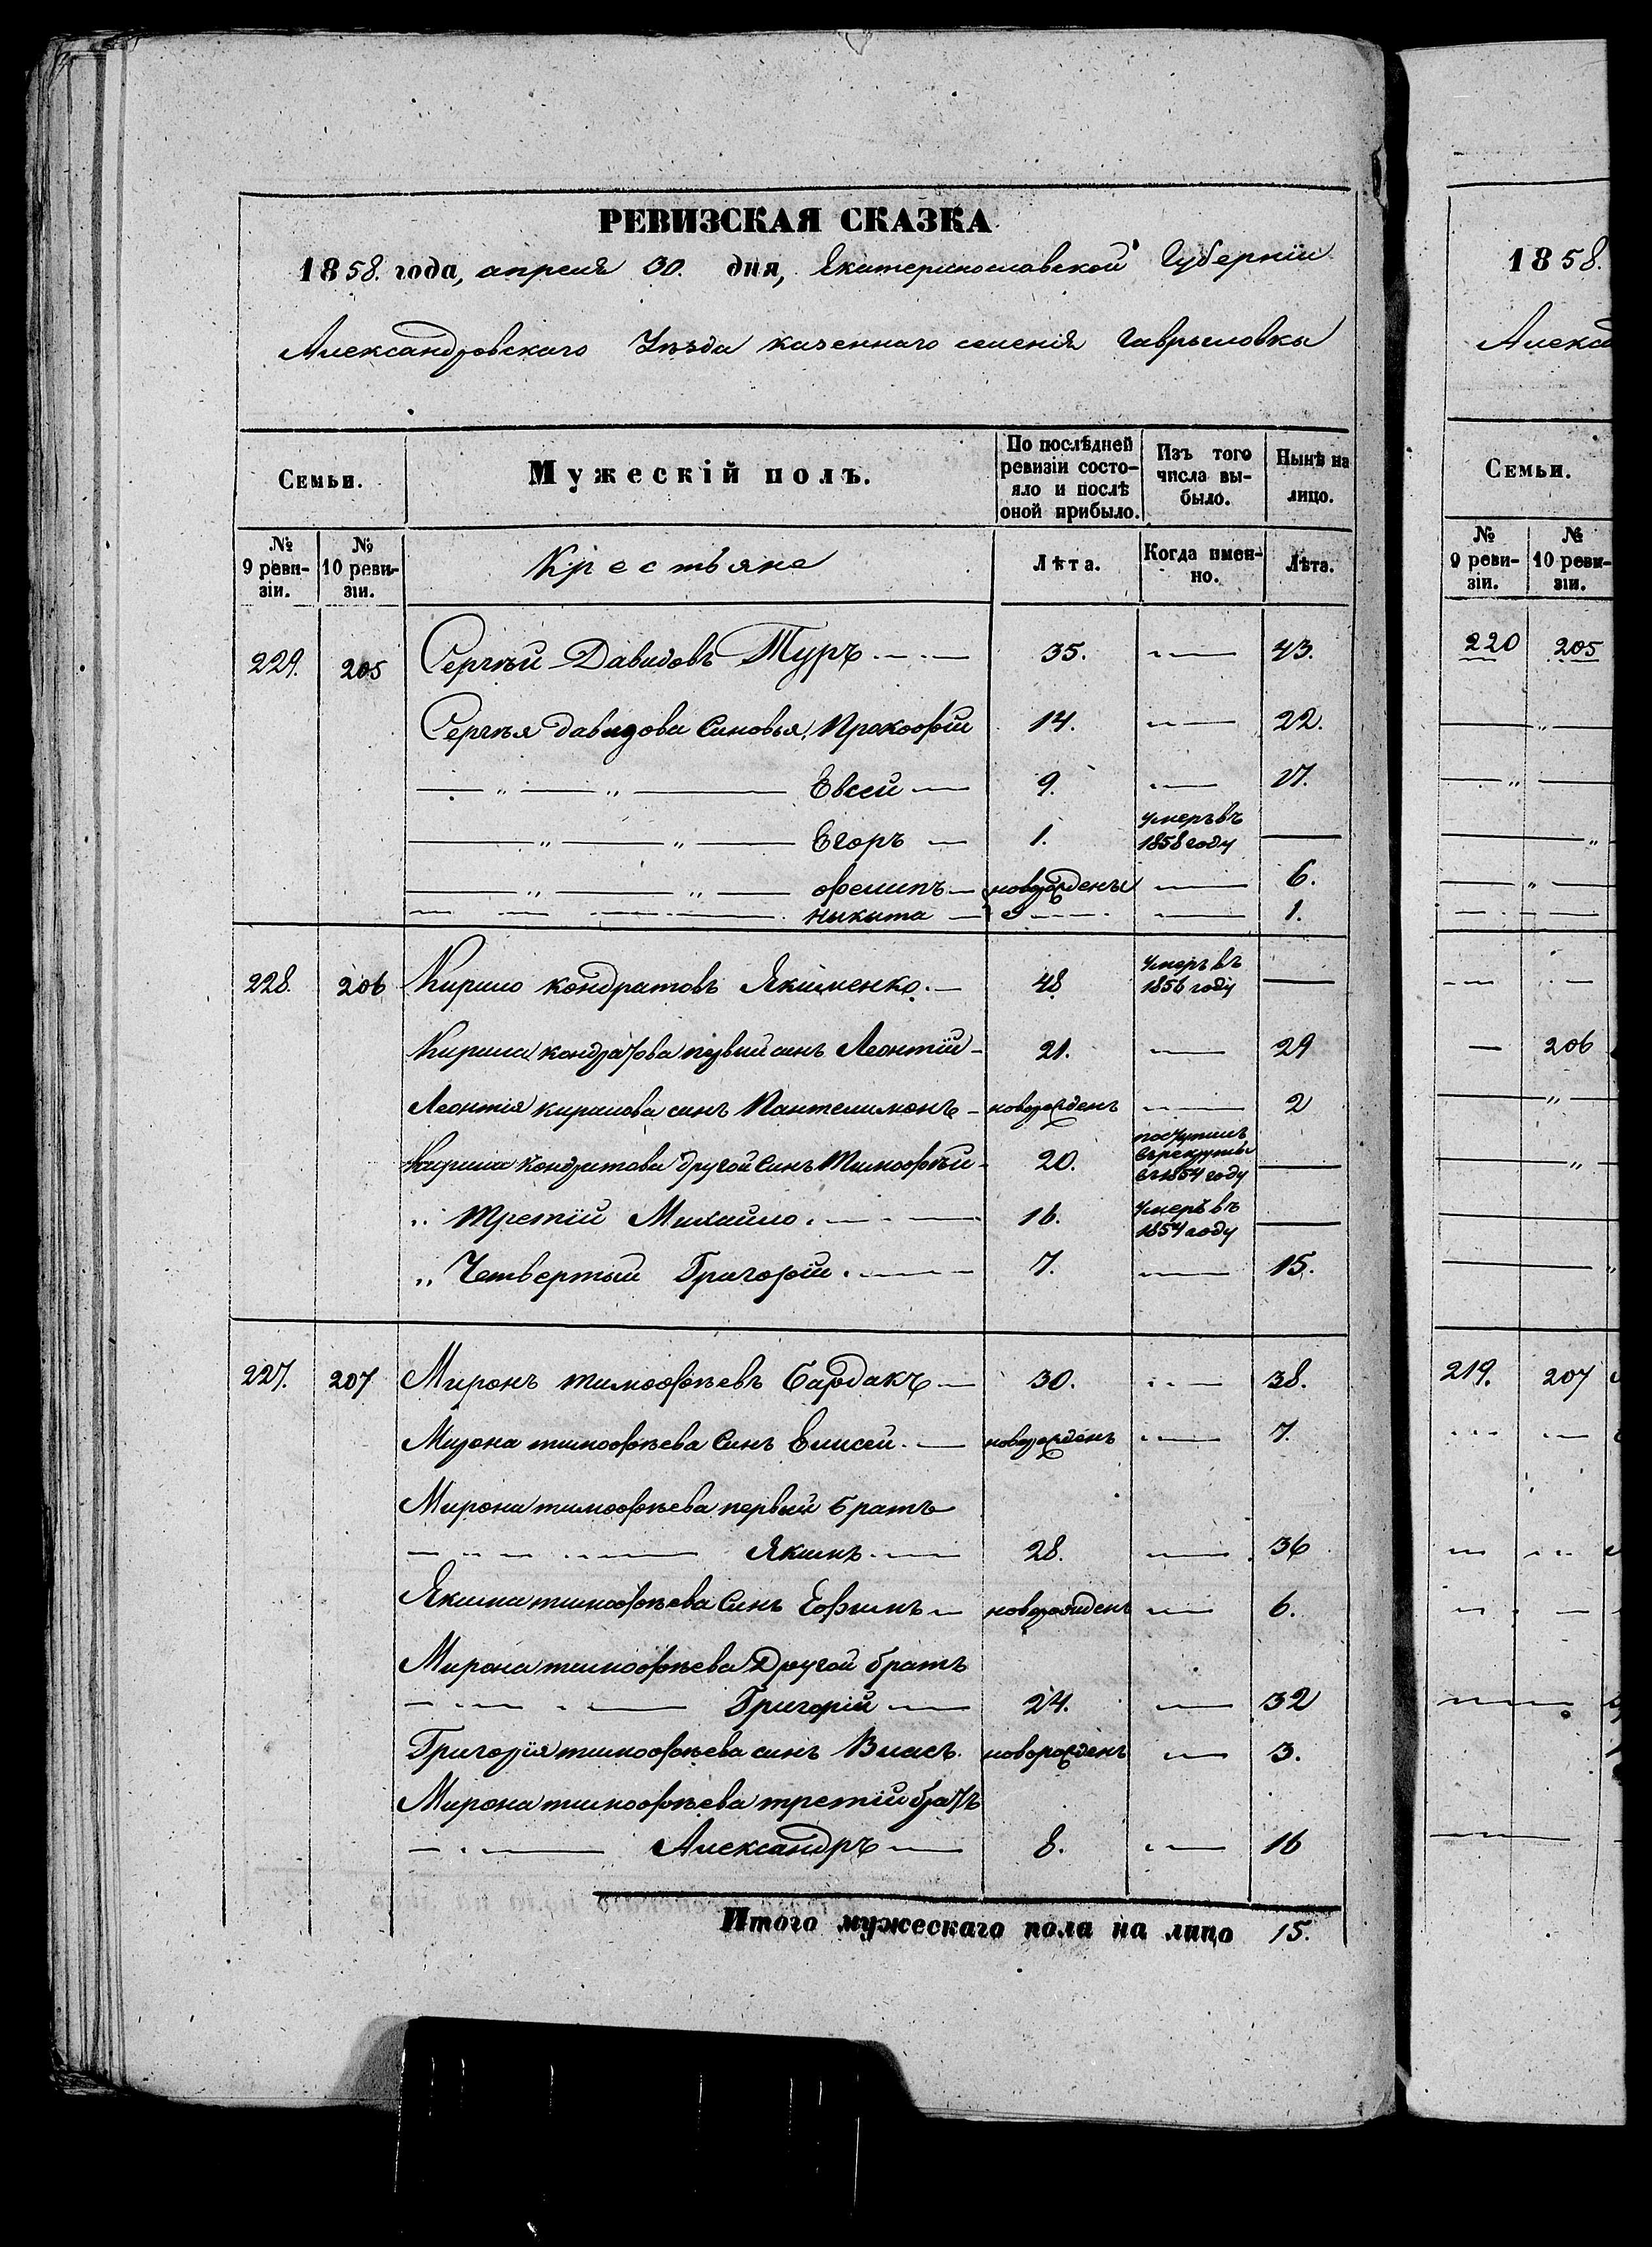 РЕВИЗСКАЯ СКАЗКА
1858. года, апреля 30. дня, Екатеринославской Губернїи
Александровскаго Уѣзда казеннаго селенія Гаврыловки
Семьи. Мужескій полъ. По послѣдней ревизіи состояло и послѣ оной прибыло. Изъ того числа выбыло. Нынѣ на лицо.
№ 9 ревизіи. № 10 ревизіи. Крестьяне Лѣта. Когда именно. Лѣта.
229. 205 Сергѣй Давидовъ Туръ 35. 43.
Сергѣя Давидова Синовья, Прокофій 14. 22.
" " Евсей 9. 17.
" " Егоръ 1. умеръ въ 1858 году
" " Филипъ новорожденъ 6.
Ныкыта 1.
228. 206 Кирило Кондратовъ Якименко. 48 умеръ въ 1856 году
Кирила Кондратова первый синъ Леонтїй 21. 29
Леонтія Кирилова синъ Пантелимонъ новорожденъ 2
Кирила Кондратова другой Синъ Тимофѣй 20. поступилъ въ рекруты въ 1854 году
" Третїй Михайло. 16. умеръ въ 1854 году
" Четвертый Григорій. 7. 15.
227. 207 Миронъ Тимофѣевъ Бардакъ 30. 38.
Мирона тимофѣева Синъ Елисей. новорожденъ 7.
Мирона тимофѣева первый братъ
Якимъ 28. 36
Якима тимофѣева Синъ Ефимъ новорожденъ 6.
Мирона тимофѣева Другой братъ
Григорій 24. 32
Григорія тимофѣева синъ Власъ. новорожденъ 3.
Мирона тимофѣева третїй братъ
Александръ 8. 16
Итого мужескаго пола на лицо 15.
1858.
Алексан
Семьи.
№ 9 ревизіи. № 10 ревизіи.
220 205
206
219. 207